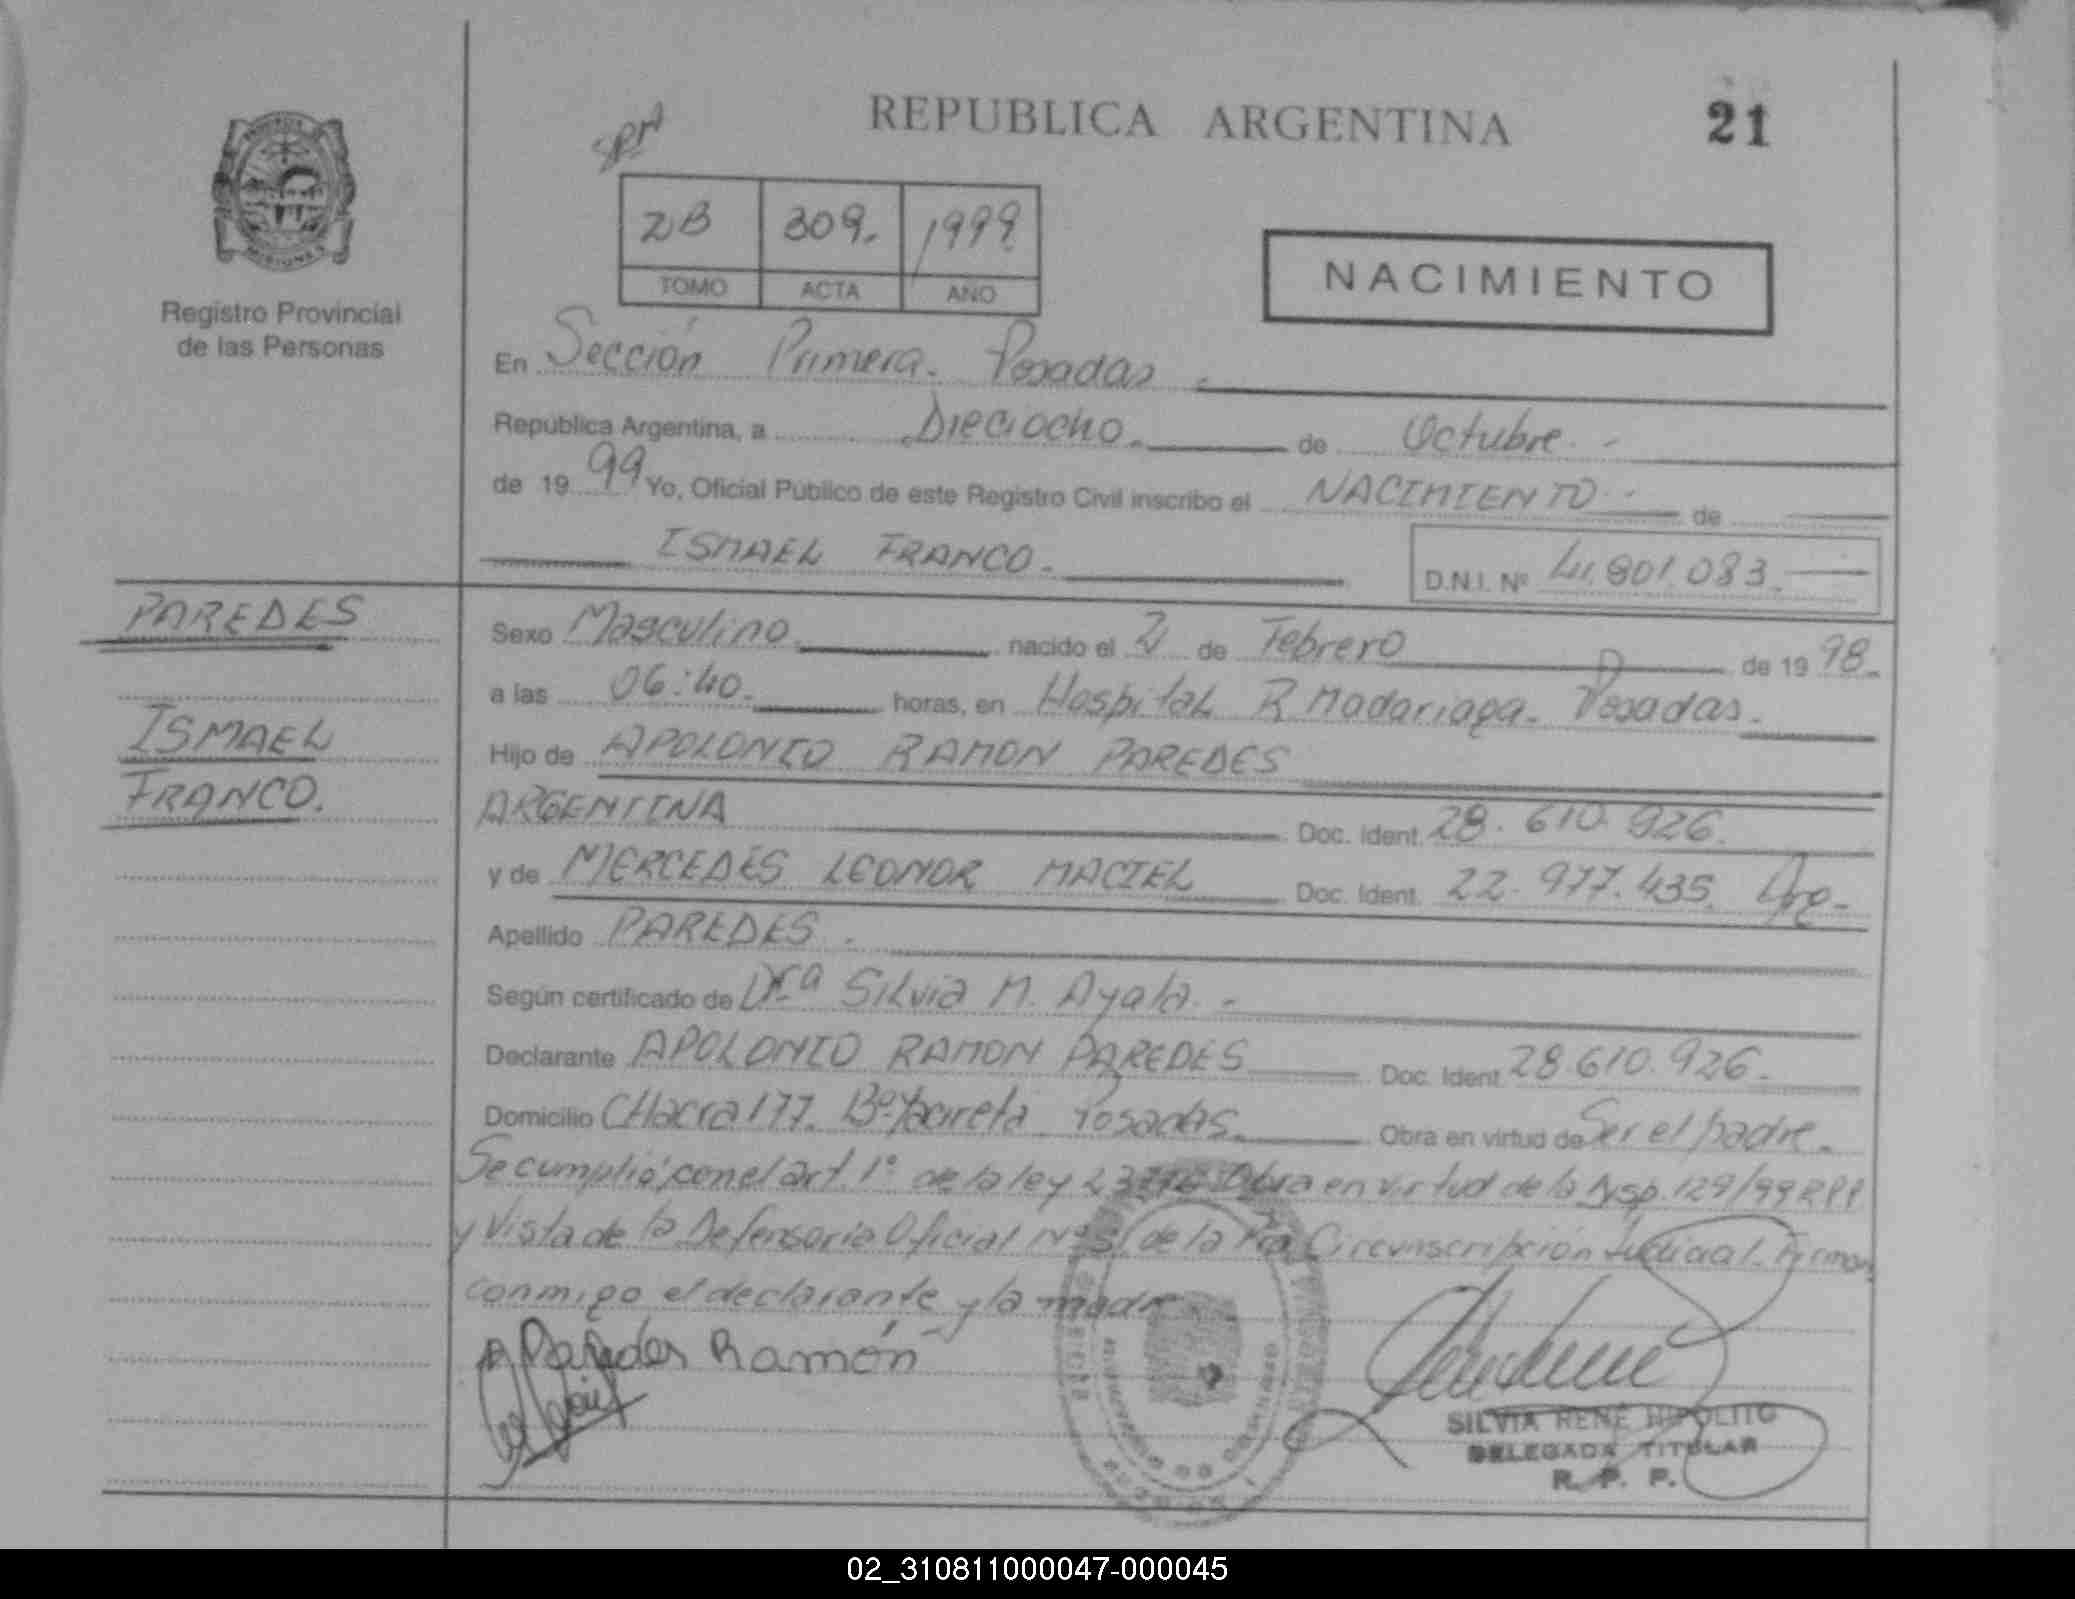 REPUBLICA ARGENTINA
21
309.
1999
TOMO
ACTA
AÑO
NACIMIENTO
Registro Provincial
de las Personas
En Sección Primera. Posadas
República Argentina, a Dieciocho. de Octubre.
de 1999 Yo, Oficial Público de este Registro Civil inscribo el NACIMIENTO de
ISMAEL FRANCO.
D.N.I. Nº 41.801.083.
PAREDES
ISMAEL
FRANCO.
Sexo Masculino nacido el 21 de Febrero de 1998.
a las 06:40. horas, en Hospital R Madariaga. Posadas.
Hijo de APOLONIO RAMON PAREDES
ARGENTINA Doc. Ident. 28.610.926.
y de MERCEDES LEONOR MACIEL Doc. Ident. 22.977.435. Arg.
Apellido PAREDES.
Según certificado de Dra Silvia M. Ayala.
Declarante APOLONIO RAMON PAREDES Doc. Ident 28.610.926.
Domicilio CHacra 177. Bº Yacireta Posadas. Obra en virtud de Ser el padre.
Se cumplió con el art. 1º de la ley Obra en virtud de la Disp. 129/99 RPP
y Vista de la Defensoria Oficial de la Circunscripción Judicial. Firman
conmigo el declarante y la madre
A Paredes Ramón
SILVIA RENÉ HIPOLITO
DELEGADA TITULAR
R. P. P.
02_310811000047-000045